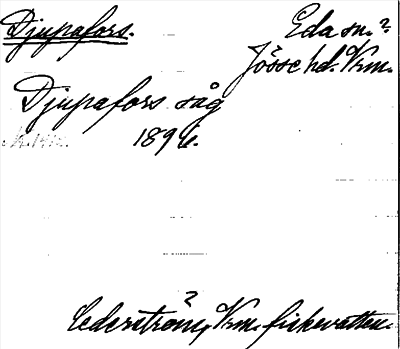 Djupafors.
Eda sn.?
Jösse hd. Vrm.
Djupafors såg
1896.
?
Cederström, Vrm. fiskevatten.